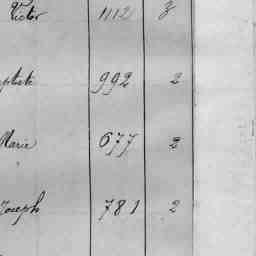 Victor 1112 3
ptiste 992 2
Marie 677 2
Joseph 781 2